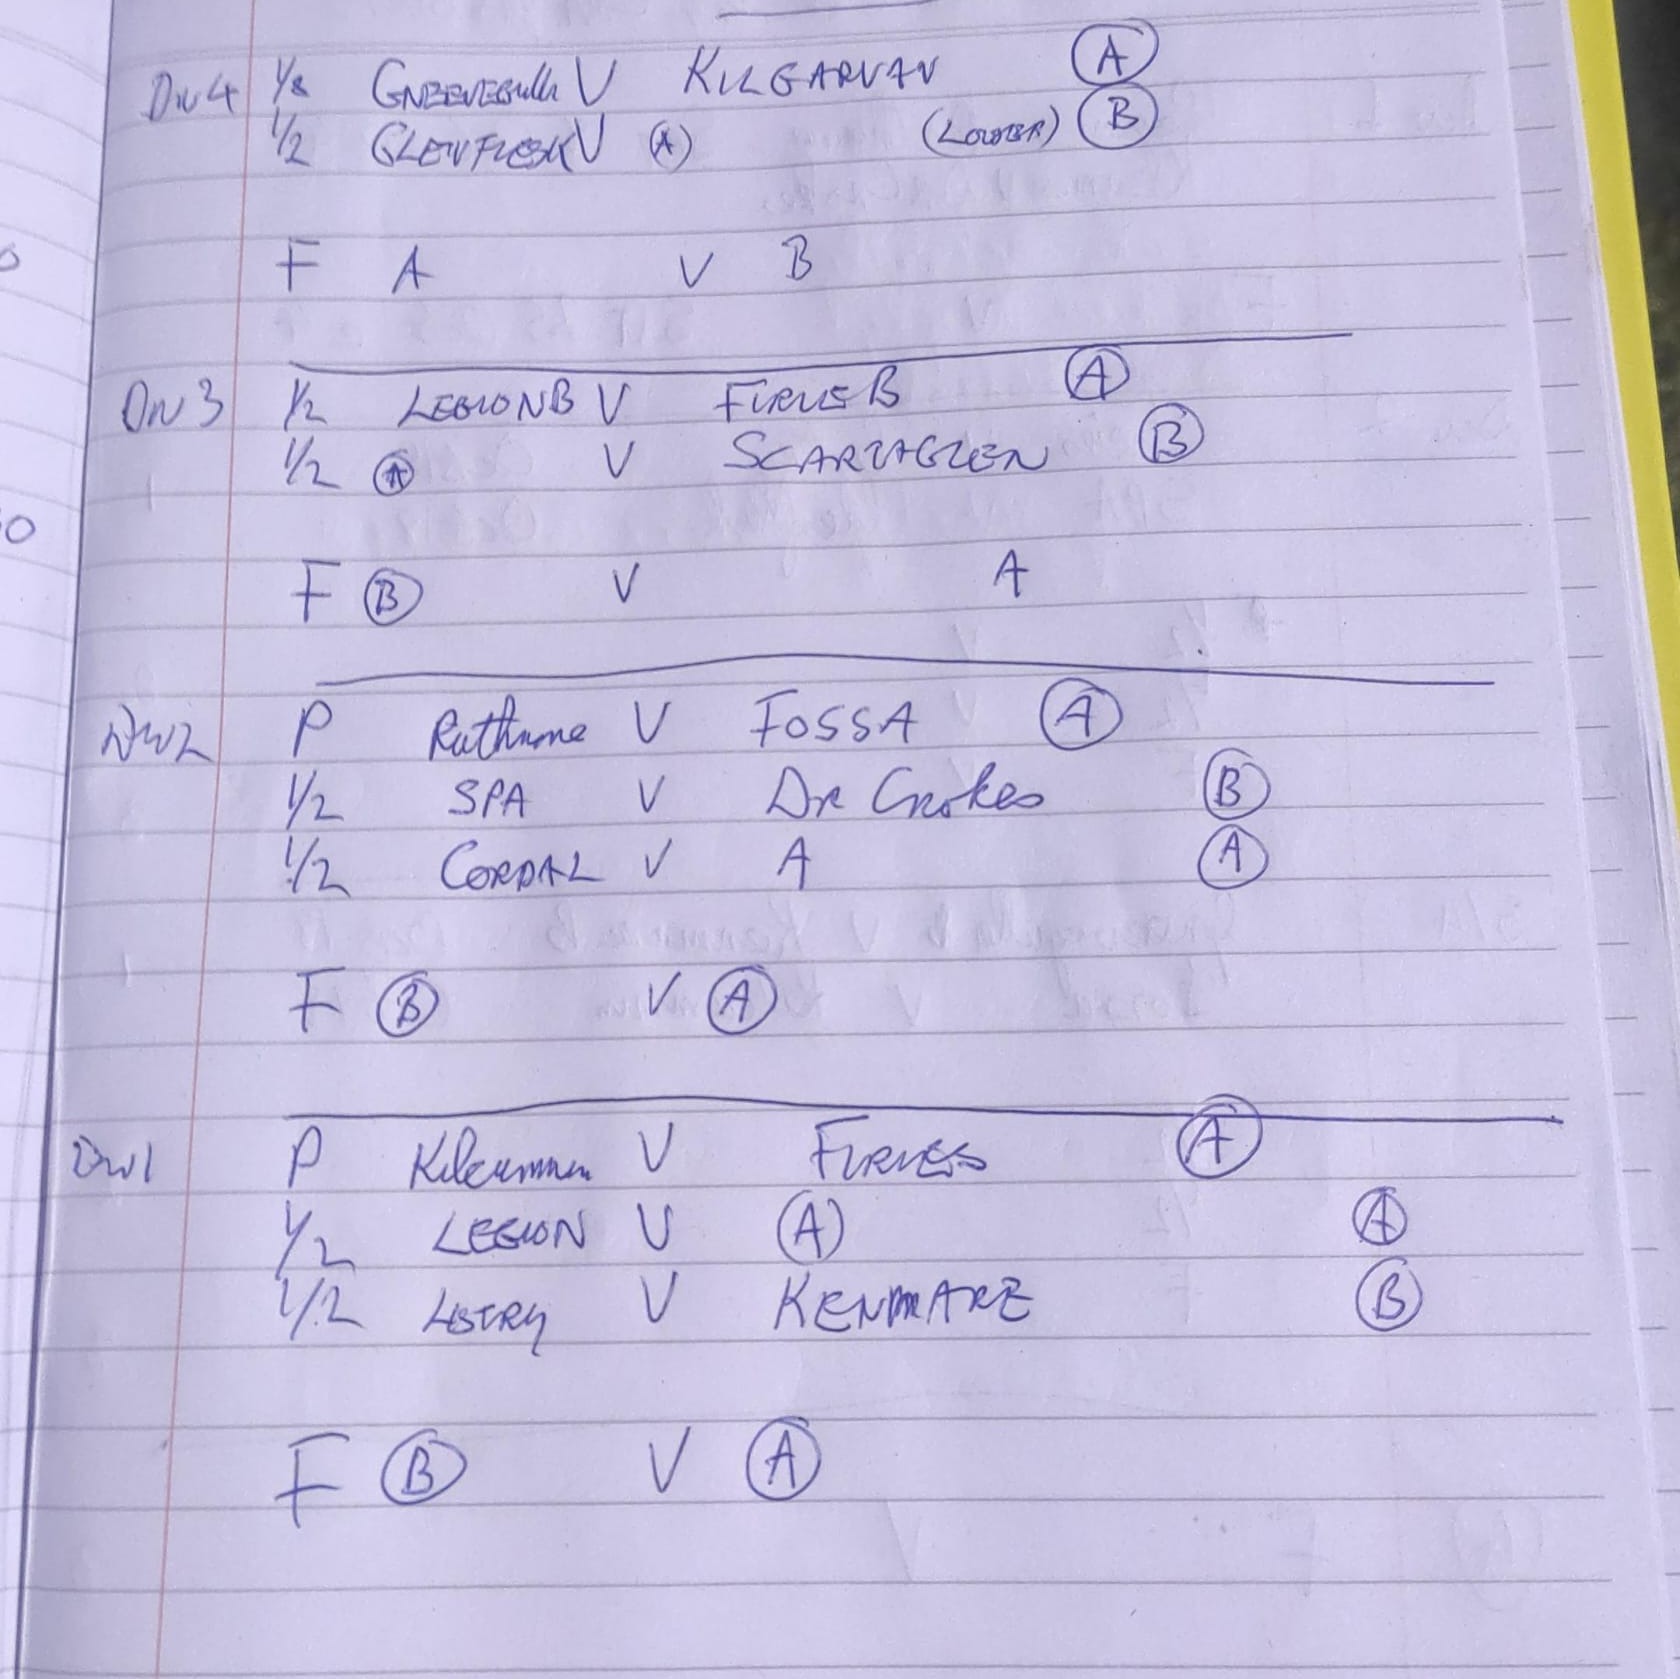 Div 4 1/2 GNEEVEGUlla V KILGARVAN (A)
1/2 GLENFLESK V (A) (LOWER) (B)
F A V B
DIV 3 1/2 LEGION B V FIRIES B (A)
1/2 (A) V SCARTAGLEN (B)
F (B) V A
DIV 2 P Rathmore V FOSSA (A)
1/2 SPA V DR CROKES (B)
1/2 CORDAL V A (A)
F (B) V (A)
Div 1 P Kilcummin V FIRIES (A)
1/2 LEGION V (A) (A)
1/2 LISTRY V KENMARE (B)
F (B) V (A)